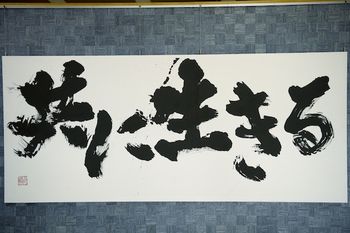 共に生きる